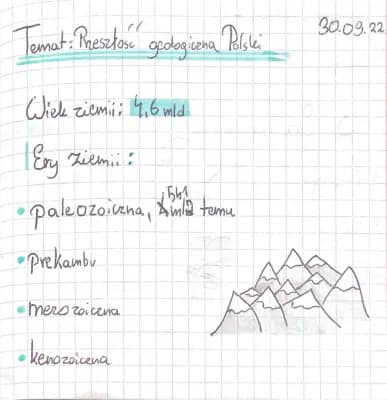 30.09.22
Temat: Przeszłość geologiczna Polski
Wiek ziemii: 4,6 mld
Ery ziemii:
• paleozoiczna, 541 mld temu
• prekambr
• mezozoiczna
• kenozoiczna